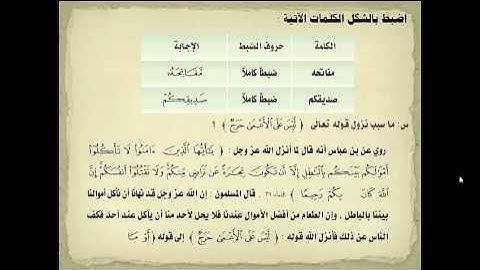 اضبط بالشكل الكلمات الآتية :
الكلمة حروف الضبط الإجابة
مفاتحه ضبطاً كاملاً مَّفَاتِحَهُۥ
صديقكم ضبطاً كاملاً صَدِيقِكُمْ
س: ما سبب نزول قوله تعالى ﴿ لَّيْسَ عَلَى ٱلْأَعْمَىٰ حَرَجٌ ﴾ ؟
روي عن بن عباس أنه قال لما أنزل الله عز وجل : ﴿ يَٰٓأَيُّهَا ٱلَّذِينَ ءَامَنُوا۟ لَا تَأْكُلُوٓا۟
أَمْوَٰلَكُم بَيْنَكُم بِٱلْبَٰطِلِ إِلَّآ أَن تَكُونَ تِجَٰرَةً عَن تَرَاضٍ مِّنكُمْ وَلَا تَقْتُلُوٓا۟ أَنفُسَكُمْ إِنَّ
ٱللَّهَ كَانَ بِكُمْ رَحِيمًا ﴾ . قال المسلمون : إن الله عز وجل قد نهانا أن نأكل أموالنا
بيننا بالباطل ، وإن الطعام من أفضل الأموال عندنا فلا يحل لأحد منا أن يأكل عند أحد فكف
الناس عن ذلك فأنزل الله قوله : ﴿ لَّيْسَ عَلَى ٱلْأَعْمَىٰ حَرَجٌ ﴾ إلى قوله ﴿ أَوْ مَا